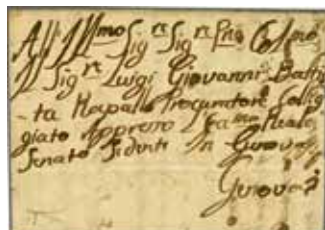 All' Ill.mo Sig.r Sig.r Pne Col.mo
Il Sig.r Luigi Giovanni Batti
-ta Rapallo Procuratore Colle
giato Appresso L'Ecc.mo Reale
Senato Sedente In Genova
Genova